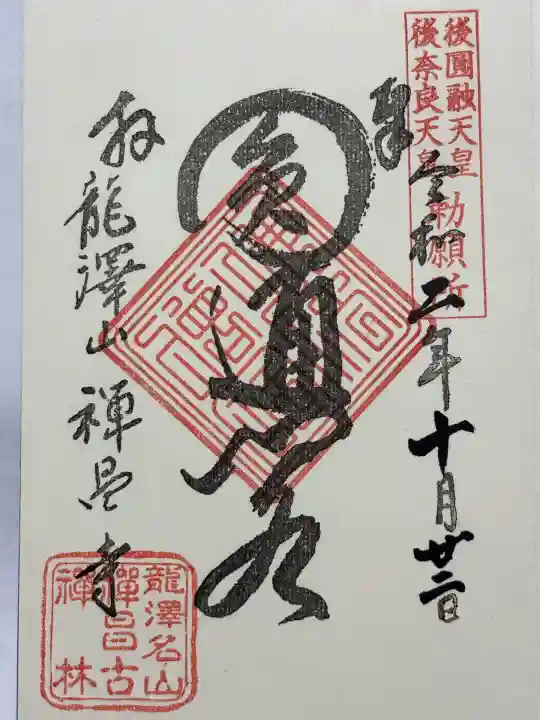 後圓融天皇
後奈良天皇
勅願所
奉
令和二年十月廿二日
圓通
拜
龍澤山 禅昌寺
龍澤名山
禪昌古
禪林